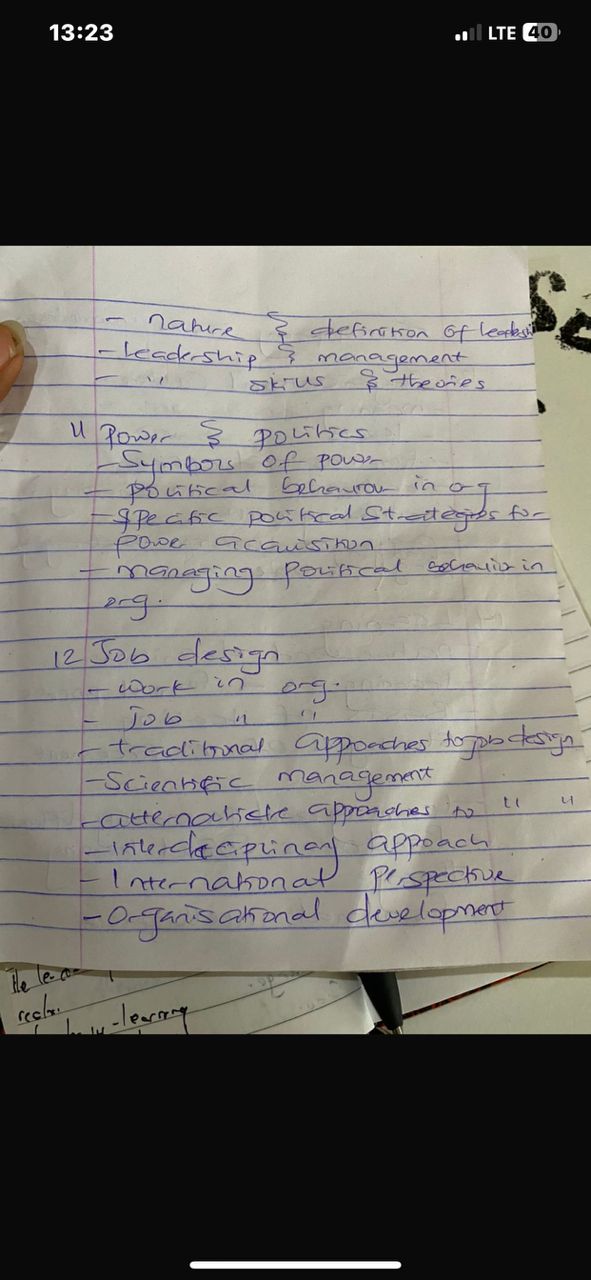 13:23
LTE 40
- nature & definition of leadership
- leadership & management
- " skills & theories
11 Power & politics
- Symbols of power
- political behaviour in org
- specific political strategies for
power acquisition
- managing political behavior in
org.
12 Job design
- work in org.
- job " "
- traditional approaches to job design
- Scientific management
- alternative approaches to " "
- interdeciplinary appoach
- International perspective
- Organisational development
rects.
- learning